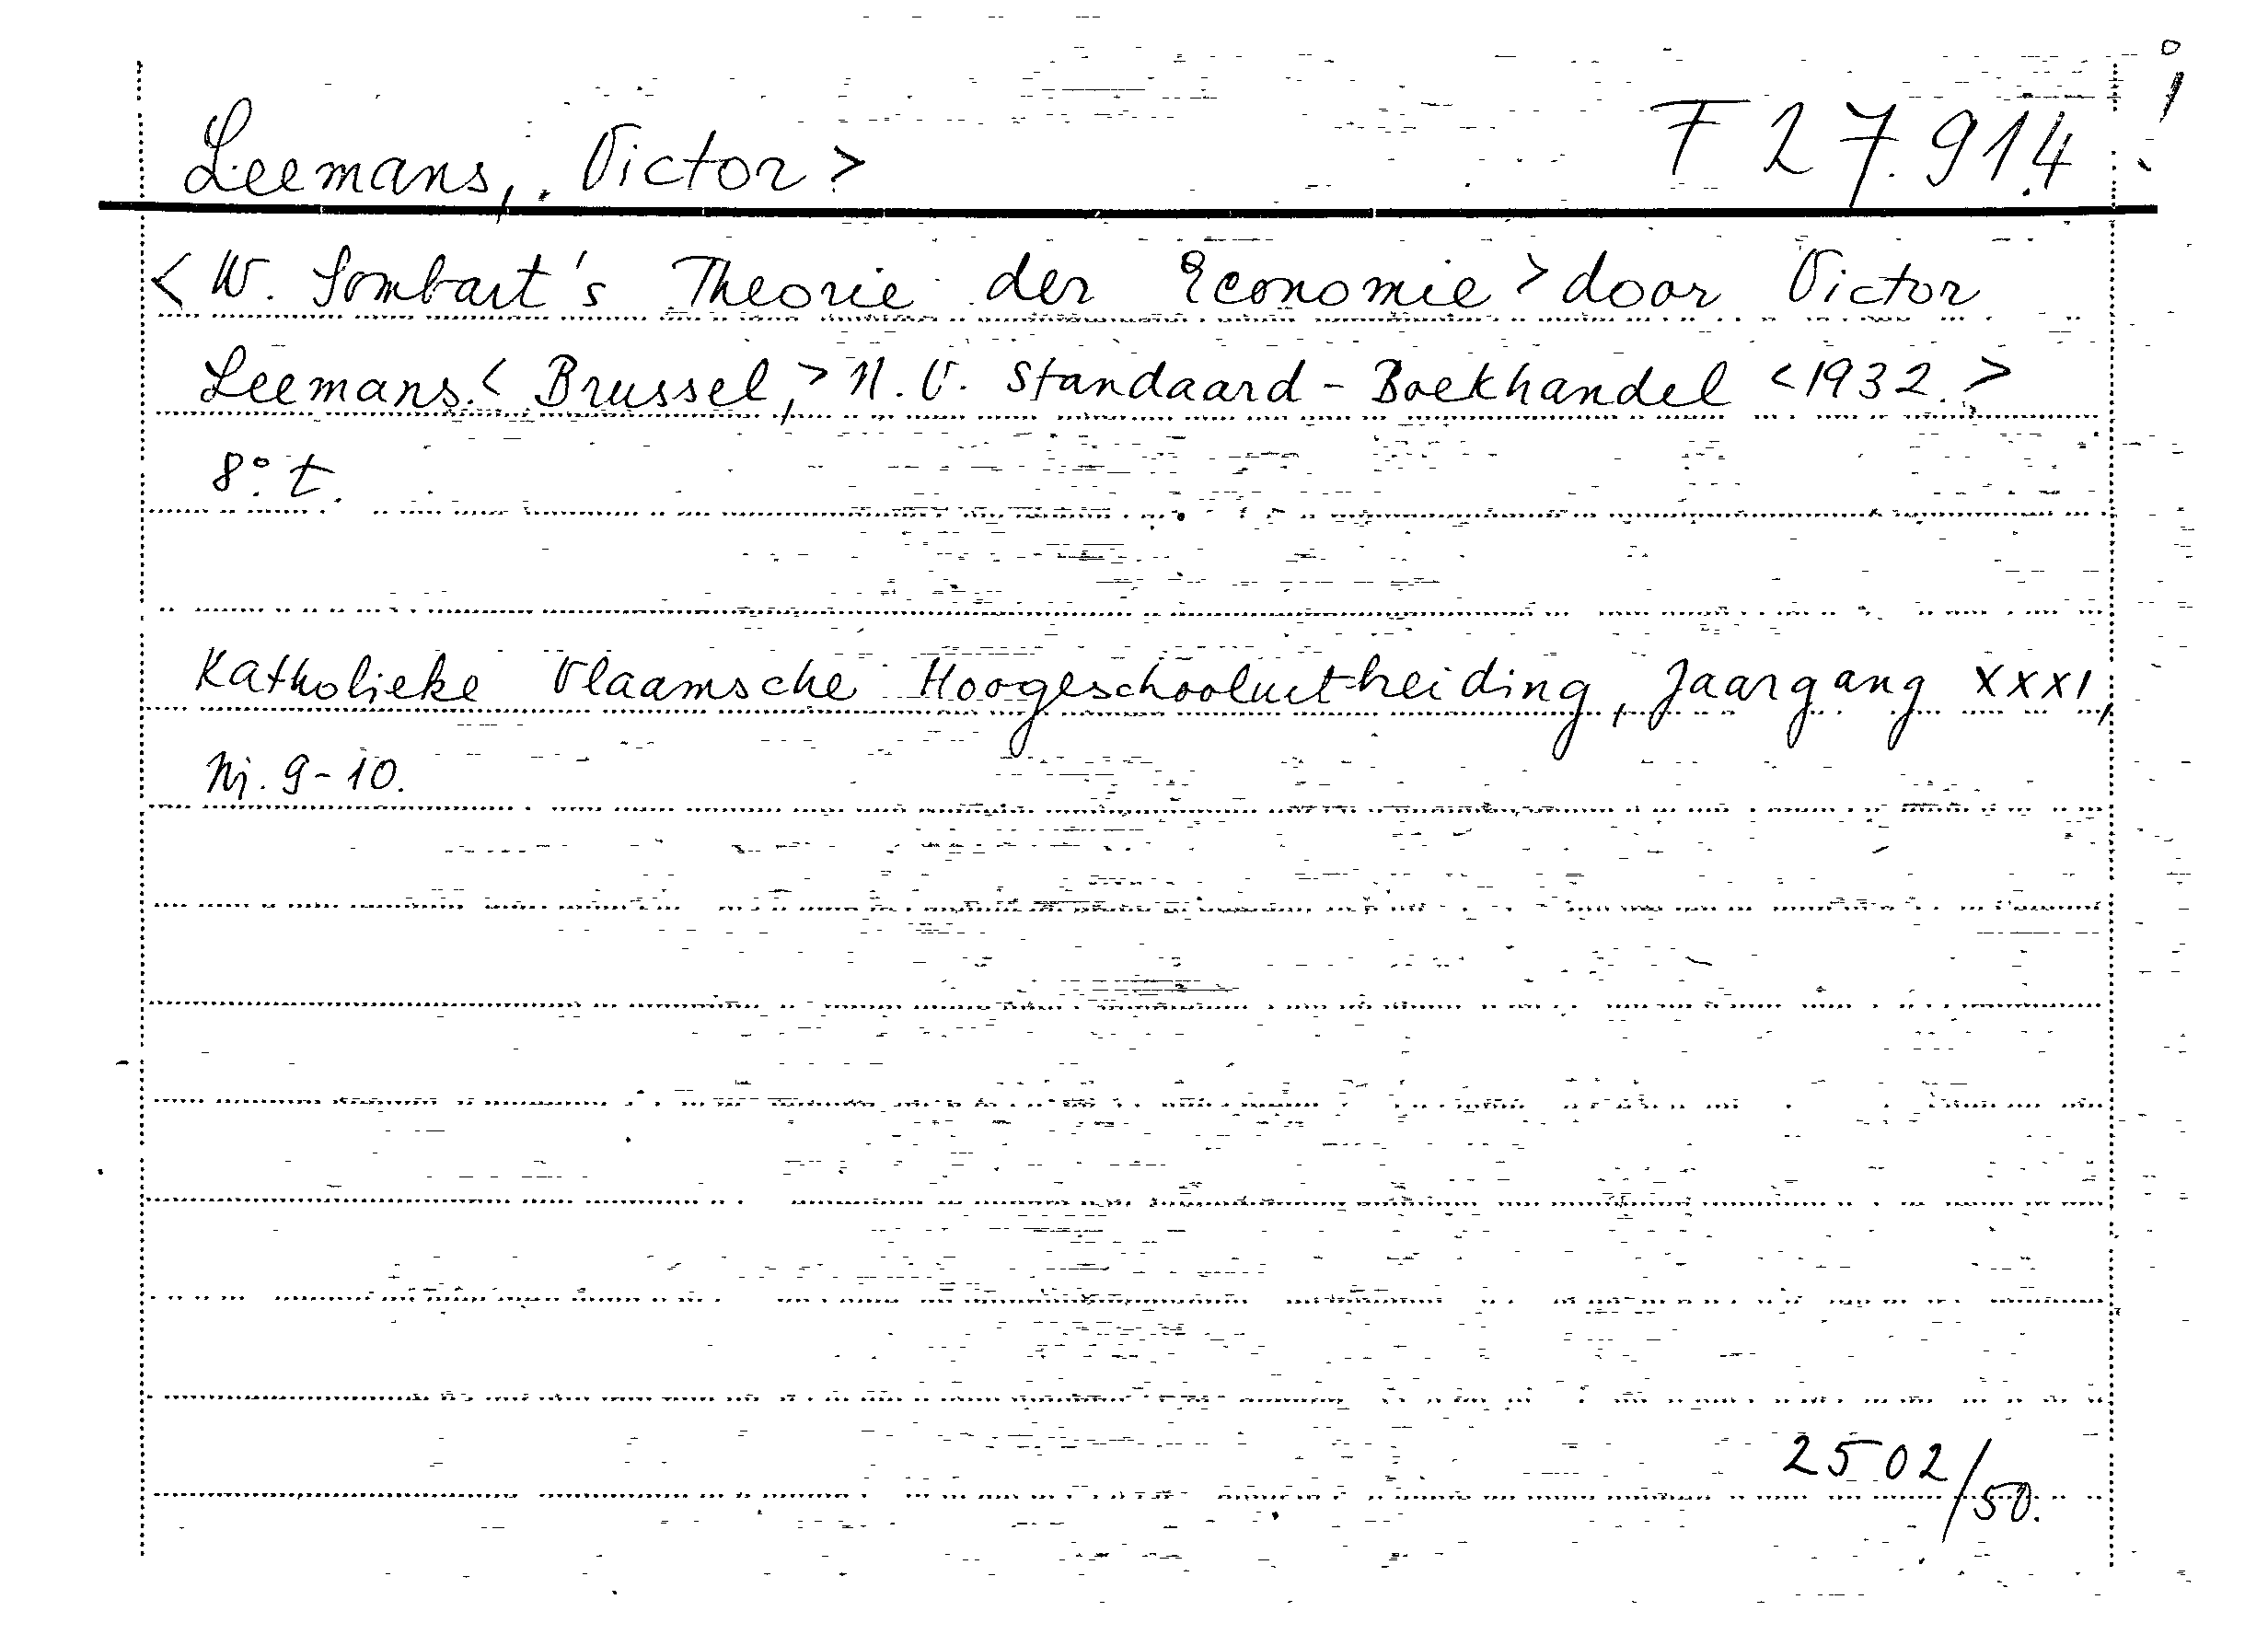 Leemans, Victor> F 27.914
<W. Sombart's Theorie der Economie> door Victor
Leemans. <Brussel,> N.V. Standaard-Boekhandel <1932.>
8° t.
Katholieke Vlaamsche Hoogeschooluitbreiding, Jaargang XXXI,
Nr. 9-10.
2502/50.